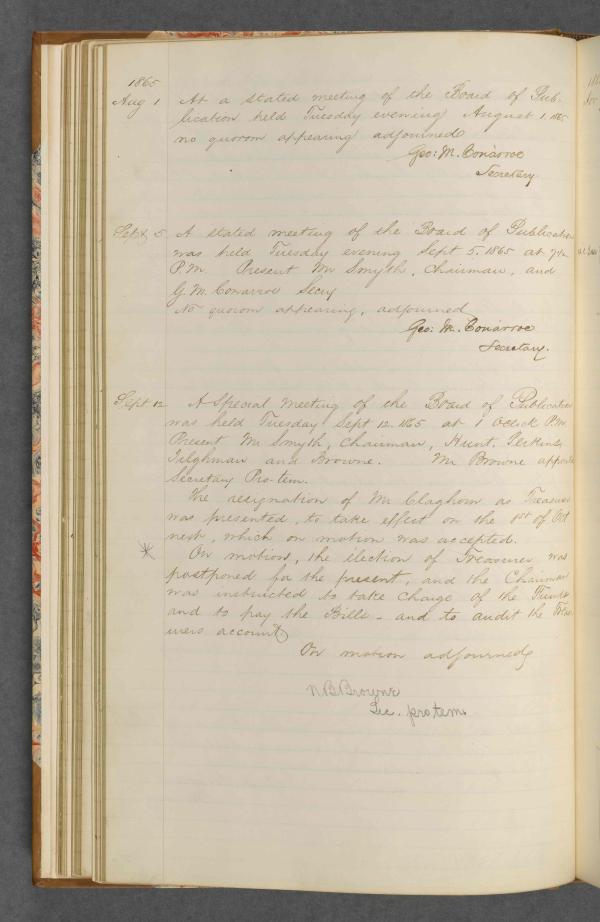 1865
Aug 1 At a stated meeting of the Board of Pub-
lication held Tuesday evening August 1. 1865
no quorom appearing adjourned
Geo: M. Conarroe
Secretary.
Sept 5 A stated meeting of the Board of Publication
was held Tuesday evening Sept 5. 1865 at 7½
P.M. Present Mr Smyth, Chairman, and
G. M. Conarroe Secy
No quorom appearing, adjourned
Geo: M. Conarroe
Secretary.
Sept 12 A Special Meeting of the Board of Publication
was held Tuesday Sept 12. 1865 at 1 oclock P.M.
Present Mr Smyth, Chairman, Hunt, Perkins,
Tilghman and Browne. Mr Browne
Secretary Pro-tem.
The resignation of Mr Claghorn as Treasurer
was presented, to take effect on the 1st of Oct
next, which on motion was accepted.
On motion, the election of Treasurer was
postponed for the present, and the Chairman
was instructed to take charge of the Funds
and to pay the Bills - and to audit the Treas
urers account
On motion adjourned
N B Browne
Sec. pro tem.